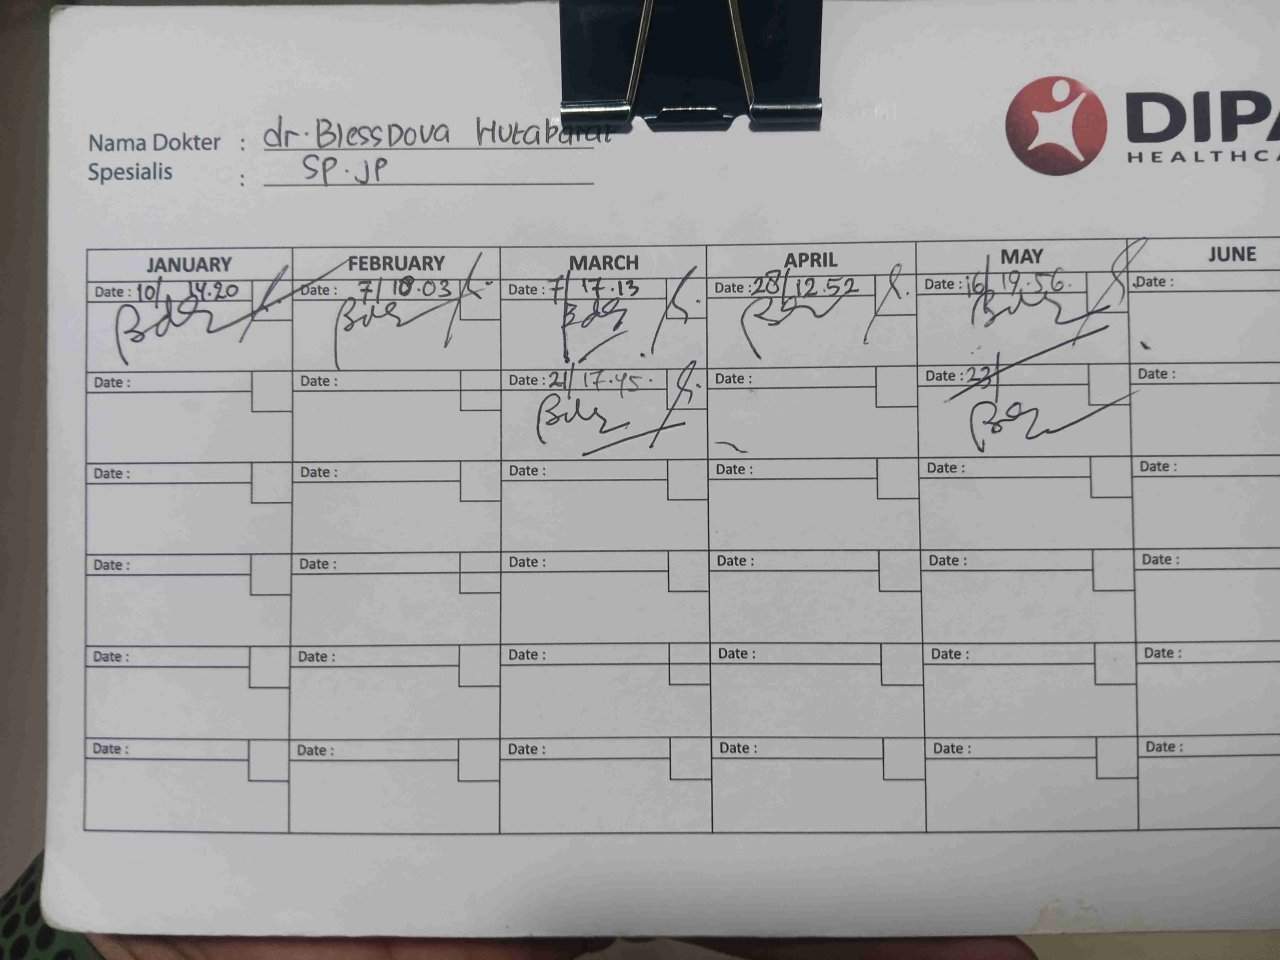 Nama Dokter : dr. Blessdova Hutabarat
Spesialis : SP. JP
DIPA
HEALTHCA
JANUARY FEBRUARY MARCH APRIL MAY JUNE
Date : 10/ 14.20 Date : 7/ 18.03 Date : 7/ 17.13 Date : 28/ 12.52 Date : 16/ 19.56. Date :
Date : Date : Date : 21/ 17.45. Date : Date : 23/ Date :
Date : Date : Date : Date : Date : Date :
Date : Date : Date : Date : Date : Date :
Date : Date : Date : Date : Date : Date :
Date : Date : Date : Date : Date : Date :